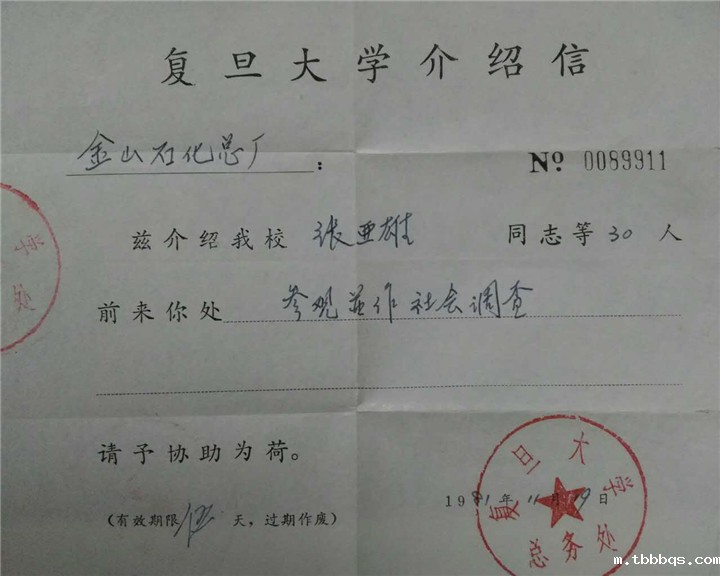 复旦大学介绍信
金山石化总厂：
No 0089911
兹介绍我校 张亚雄 同志等 30 人
前来你处 参观并作社会调查
请予协助为荷。
1981年11月19日
(有效期限 伍 天，过期作废)
复旦大学
总务处
学
处
m.tbbbqs.com